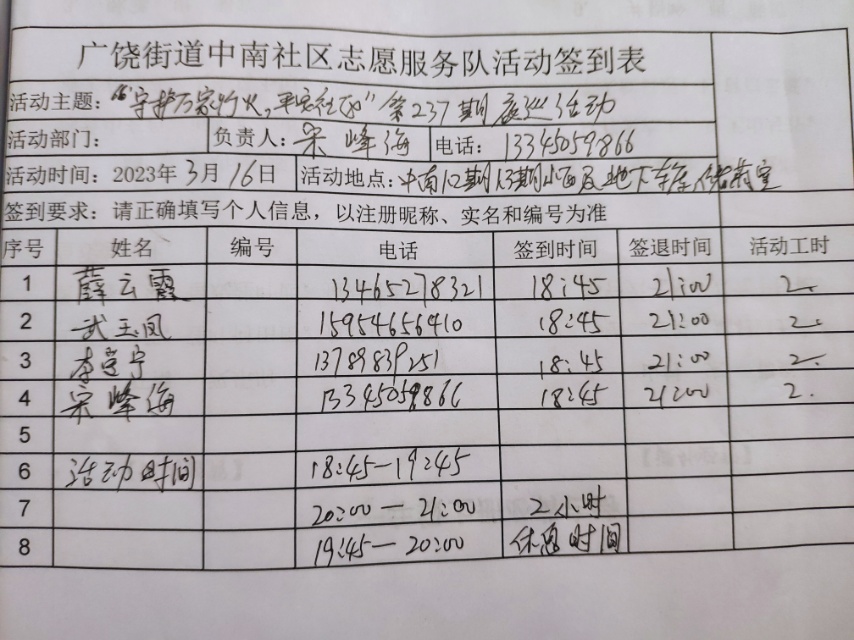 广饶街道中南社区志愿服务队活动签到表
活动主题：“守护万家灯火，平安社区”第237期夜巡活动
活动部门： 负责人：宋峰海 电话：13345059866
活动时间：2023年3月16日 活动地点：中南12期13期小区及地下车库储藏室
签到要求：请正确填写个人信息，以注册昵称、实名和编号为准
序号 姓名 编号 电话 签到时间 签退时间 活动工时
1 薛云霞 13465278321 18:45 21:00 2
2 武玉凤 15954656410 18:45 21:00 2
3 李 宁 13789839251 18:45 21:00 2
4 宋峰海 13345059866 18:45 21:00 2
5
6 活动时间 18:45—19:45
7 20:00—21:00 2小时
8 19:45—20:00 休息时间